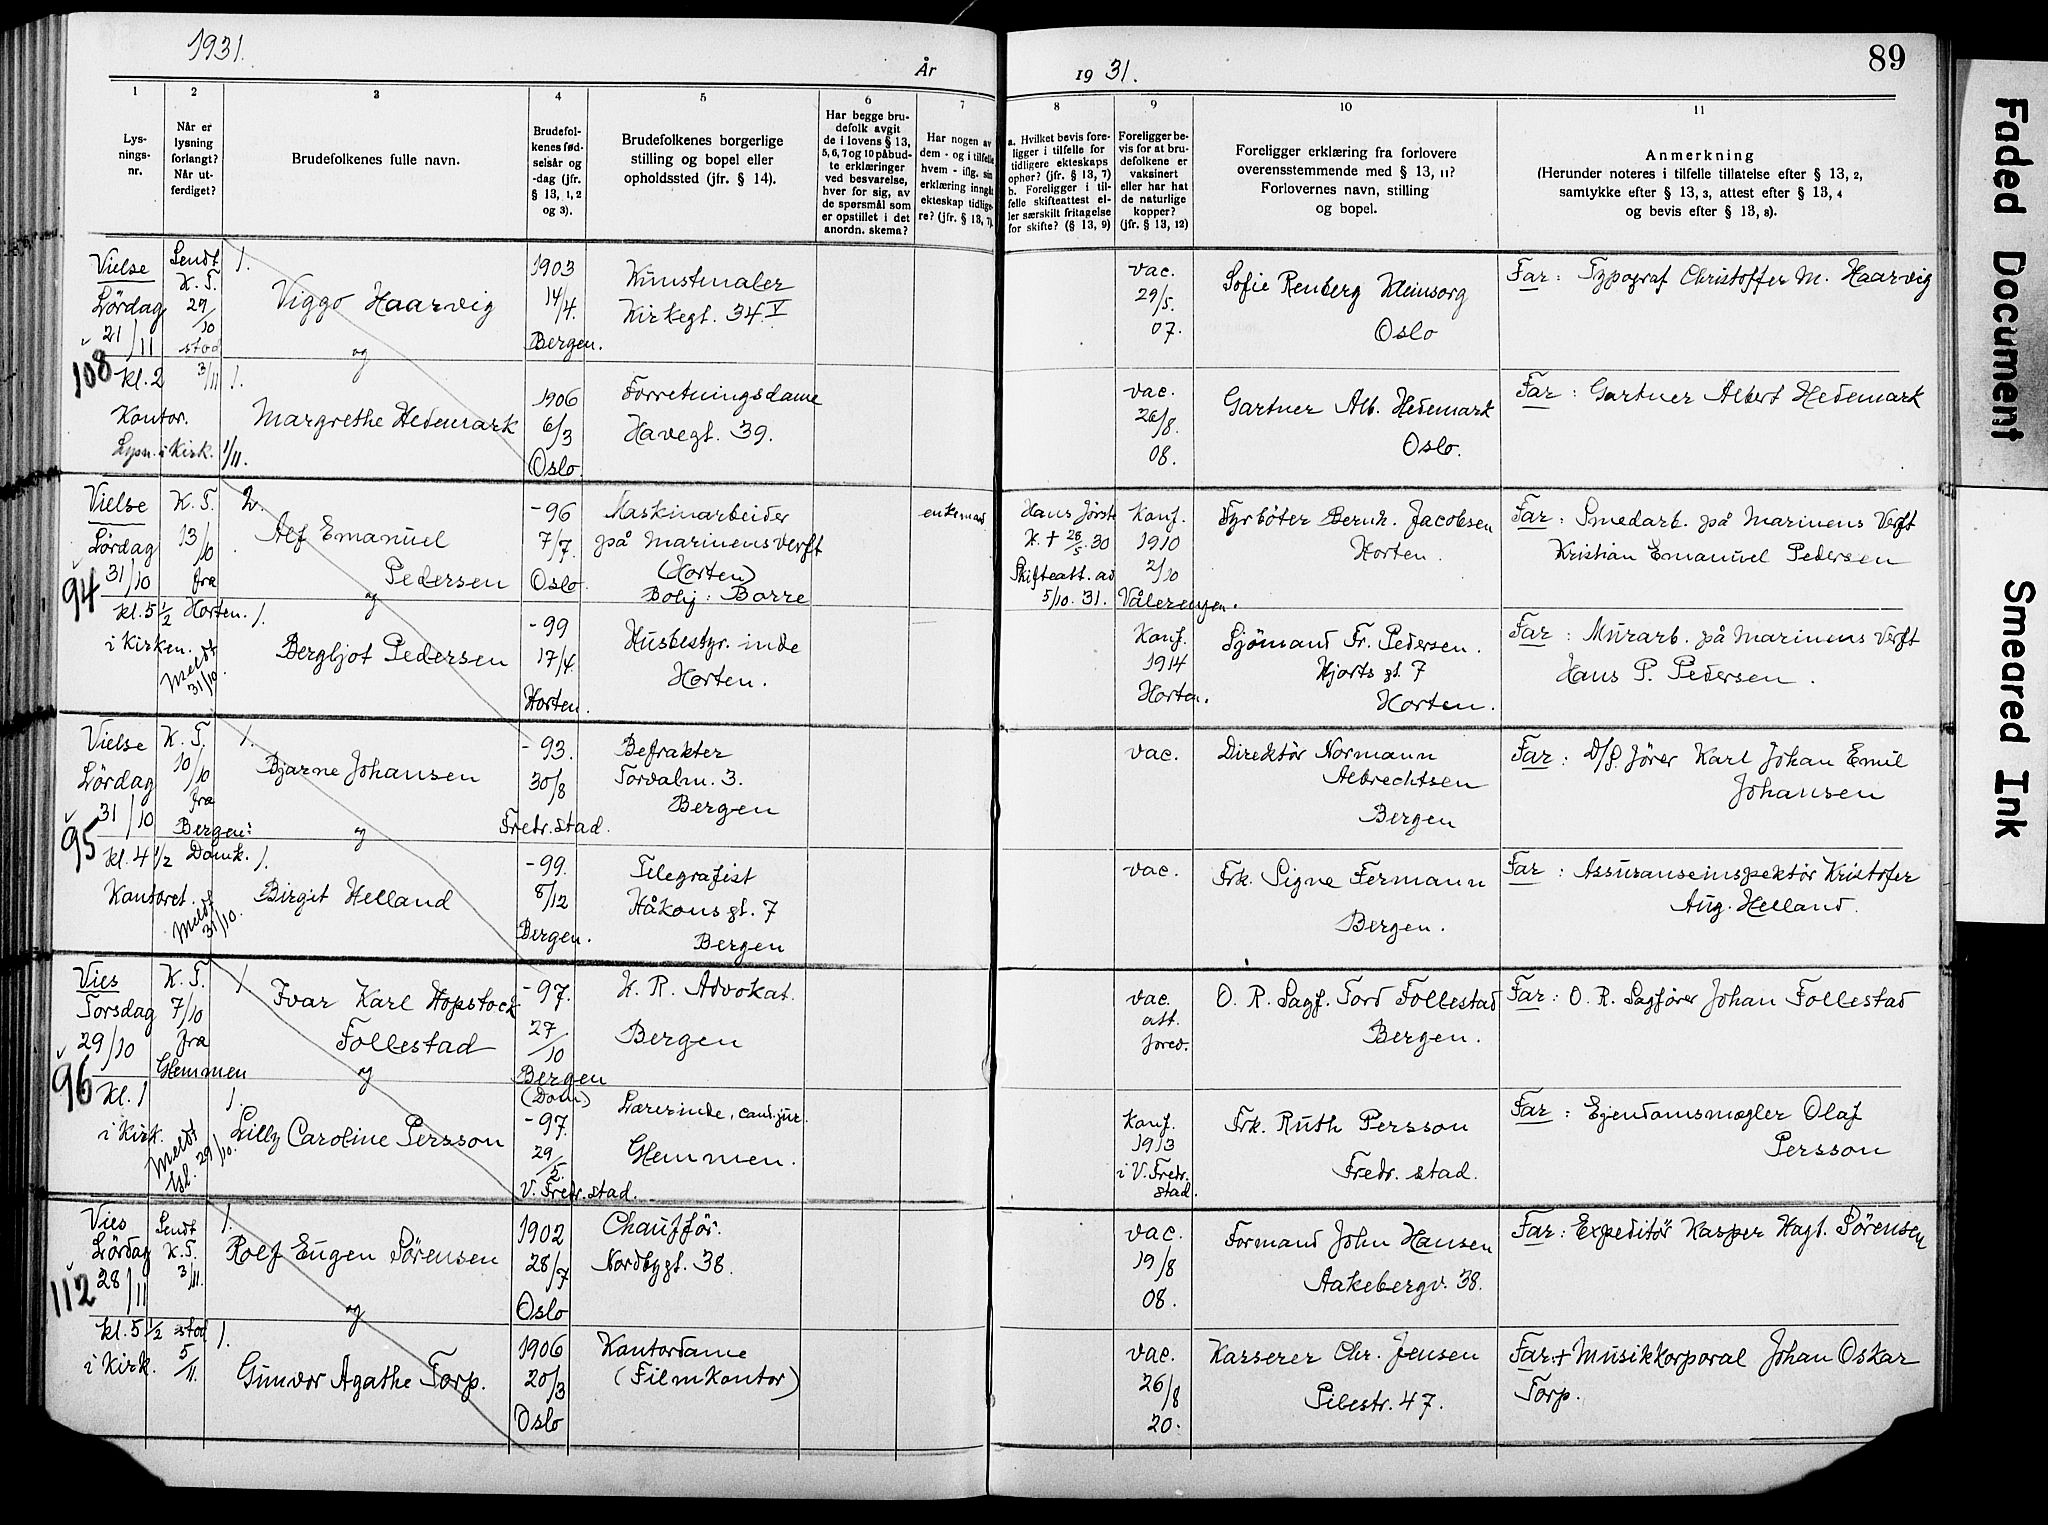 1931.
År
1931.
89
1
2
3
4
5
6
7
8
9
10
11
Lys-
nings-
nr.
Når er
lysning
forlangt?
Når ut-
ferdiget?
Brudefolkenes fulle navn.
Brudefol-
kenes fød-
selsår og
-dag (jfr.
§ 13, 1, 2
og 3).
Brudefolkenes borgerlige
stilling og bopel eller
opholdssted (jfr. § 14).
Har begge bru-
defolk avgit
de i lovens § 13,
5, 6, 7 og 10 påbud-
te erklæringer
ved besvarelse,
hver for sig, av
de spørsmål som
er opstillet i det
anordn. skema?
Har nogen av
dem - og i tilfelle
hvem - iflg. sin
erklæring inngått
ekteskap tidlige-
re? (jfr. § 13, 7).
a. Hvilket bevis fore-
ligger i tilfelle for
tidligere ekteskaps
ophør? (jfr. § 13, 7)
b. Foreligger i til-
felle skifteattest el-
ler særskilt fritagelse
for skifte? (§ 13, 9)
Foreligger be-
vis for at bru-
defolkene er
vaksinert
eller har hat
de naturlige
kopper?
(jfr. § 13, 12)
Foreligger erklæring fra forlovere
overensstemmende med § 13, 11?
Forlovernes navn, stilling
og bopel.
Anmerkning
(Herunder noteres i tilfelle tillatelse efter § 13, 2,
samtykke efter § 13, 3, attest efter § 13, 4
og bevis efter § 13, 8).
Vielse
Lördag
21/11
108
kl. 2
Kontor.
Lysn. i Kirk. 1/11.
Sendt
K. T.
29/10
stod
3/11
1.
Viggo Haarvig
og
1.
Margrethe Hedemark
1903
14/4.
Bergen.
1906
6/3
Oslo.
Kunstmaler
Kirkegt. 34 V
Forretningsdame
Havegt. 39.
vac.
29/5.
07.
vac.
26/8.
08.
Sofie Renberg Kleinsorg
Oslo
Gartner Alb. Hedemark
Oslo.
Far: Typograf Christoffer M. Haarvig
Far: Gartner Albert Hedemark
Vielse
Lördag
31/10
94
kl. 5 1/2
i Kirken.
K. T.
13/10
fra
Horten.
Meldt
31/10.
2.
Alf Emanuel
Pedersen
og
1.
Bergljot Pedersen
-96
7/7.
Oslo.
-99
17/4.
Horten.
Maskinarbeider
på Marinens Verft
(Horten)
Bolig: Borre
Husbestyr.inde
Horten.
enkemand
K. + 26/5.30
Skifteatt. ad
5/10. 31.
Konf.
1910
2/10
Vålerengen.
Konf.
1914
Horten.
Fyrböter Bernh. Jacobsen
Horten.
Sjömand Fr. Pedersen.
Hjorts gt. 7
Horten.
Far: Smedarb. på Marinens Verft
Kristian Emanuel Pedersen
Far: Murarb. på Marinens Verft
Hans P. Pedersen.
Vielse
Lördag
31/10
95
kl. 4 1/2
Kontoret.
K. T.
10/10
fra
Bergen:
Domk.
Meldt
31/10.
1.
Bjarne Johansen
og
1.
Birgit Helland
-93.
30/8
Fredr.stad.
-99.
8/12
Bergen.
Befrakter
Torvalm. 3.
Bergen
Telegrafist
Håkons gt. 7
Bergen
vac.
vac.
Direktör Normann
Albrechtsen
Bergen
Frk. Signe Fermann
Bergen.
Far: D/S. förer Karl Johan Emil
Johansen
Far: Assuranseinspektör Kristofer
Aug. Helland.
Vies
Torsdag
29/10
96
kl. 1
i Kirk.
K. T.
7/10
fra
Glemmen
Meldt
Gl. 29/10.
1.
Ivar Karl Hopstock
Follestad
og
1.
Lilly Caroline Persson
-97.
27/10
Bergen
(Dom)
-97.
29/5.
V. Fredr.stad.
H. R. Advokat.
Bergen
Lærerinde, cand. jur.
Glemmen.
vac.
att.
forev.
Konf.
1913
i V. Fredr.
stad.
O. R. Sagf. Tord Follestad
Bergen.
Frk. Ruth Persson
Fredr. stad.
Far: O. R. Sagförer Johan Follestad
Far: Ejendomsmægler Olaf
Persson
Vies
Lördag
28/11
112
kl. 5 1/2
i Kirk.
Sendt
K. T.
3/11.
stod
5/11.
1.
Rolf Eugen Sörensen
og
1.
Gunvor Agathe Torp.
1902
28/7
Oslo
1906
20/3
Oslo
Chaufför.
Nordbygt. 38.
Kontordame
(Filmkontor)
vac.
19/8
08.
vac.
26/8
20.
Formand John Hansen
Aakebergv. 38.
Kasserer Chr. Jensen
Pilestr. 47.
Far: Expeditör Kasper Hagb. Sörensen
Far: + Musikkorporal Johan Oskar
Torp.
Faded Document
Smeared Ink